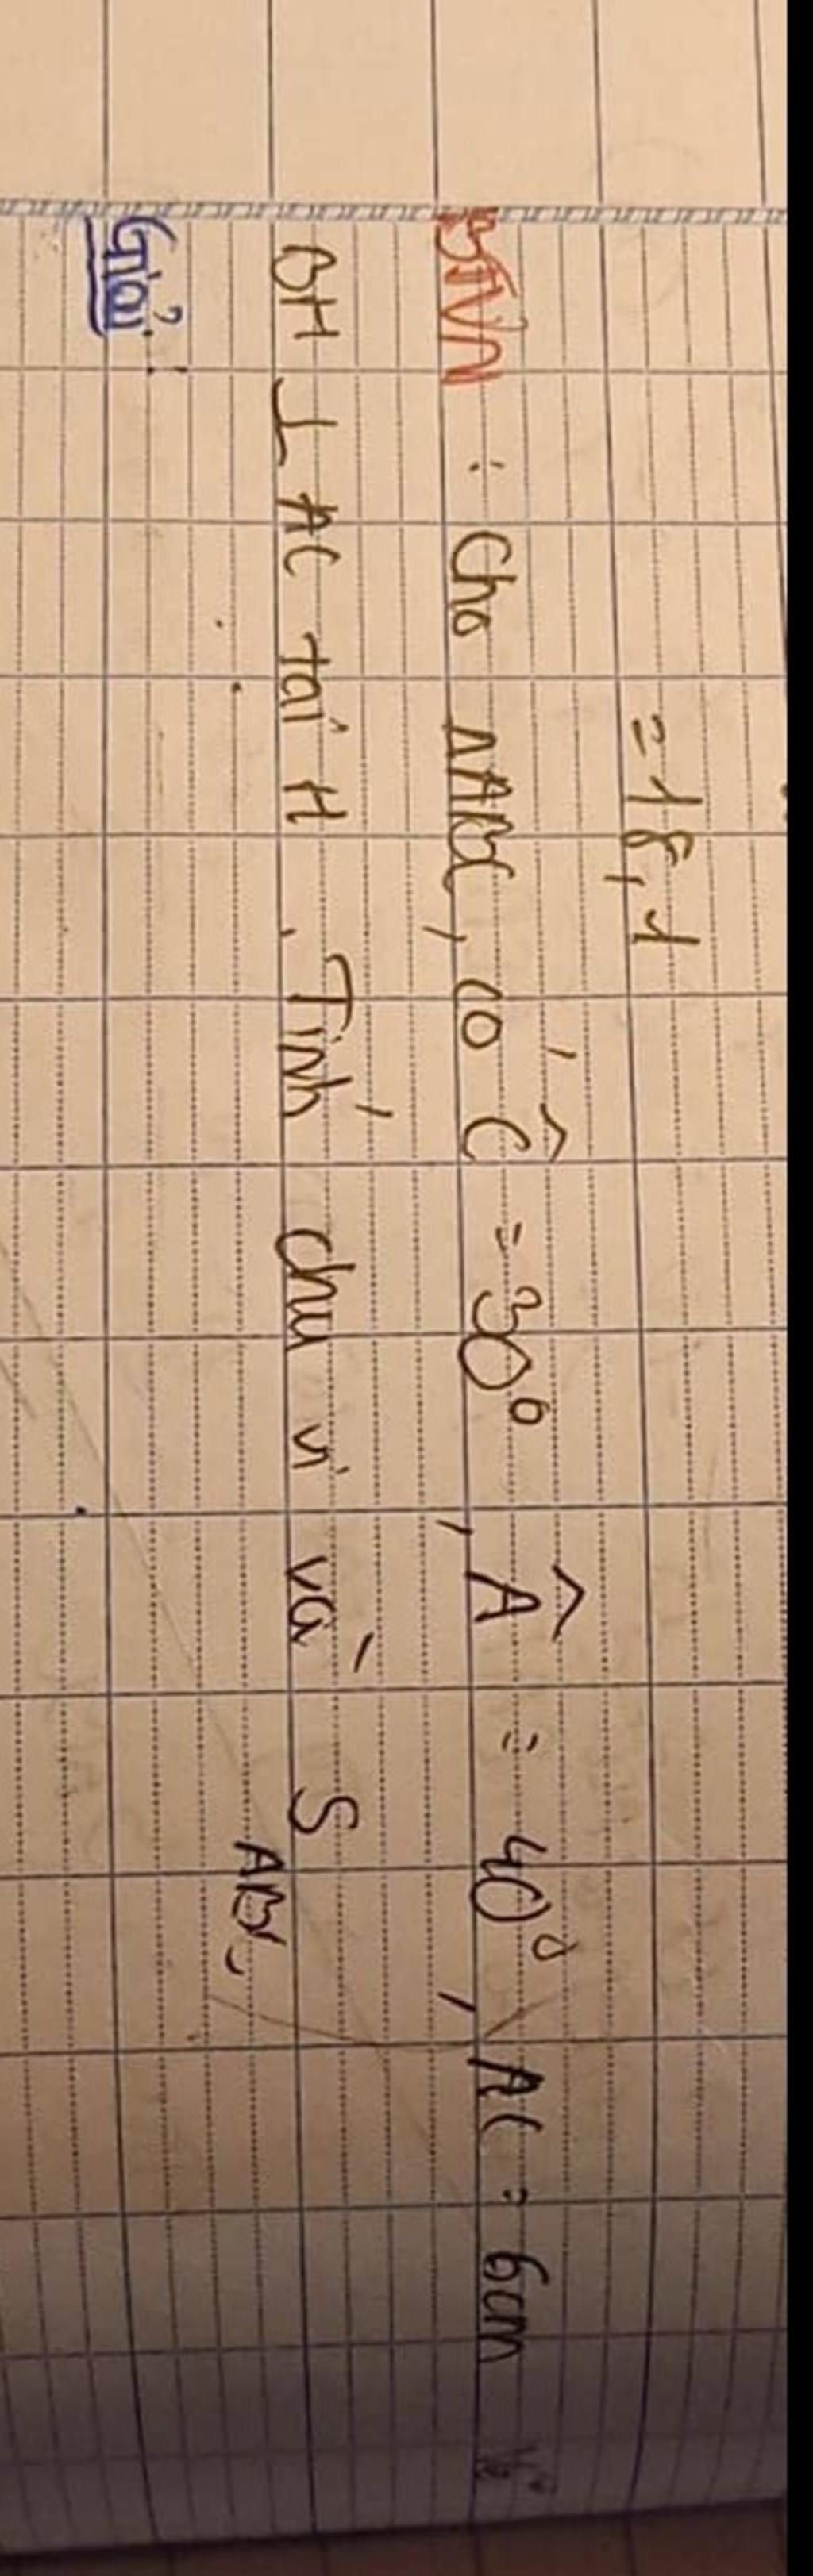 = 18,1
BTVN : Cho ΔABC, có Ĉ = 30⁰, Â = 40⁰, AC = 6cm Vẽ
BH ⊥ AC tại H. Tính chu vi và S ABC
Giải: